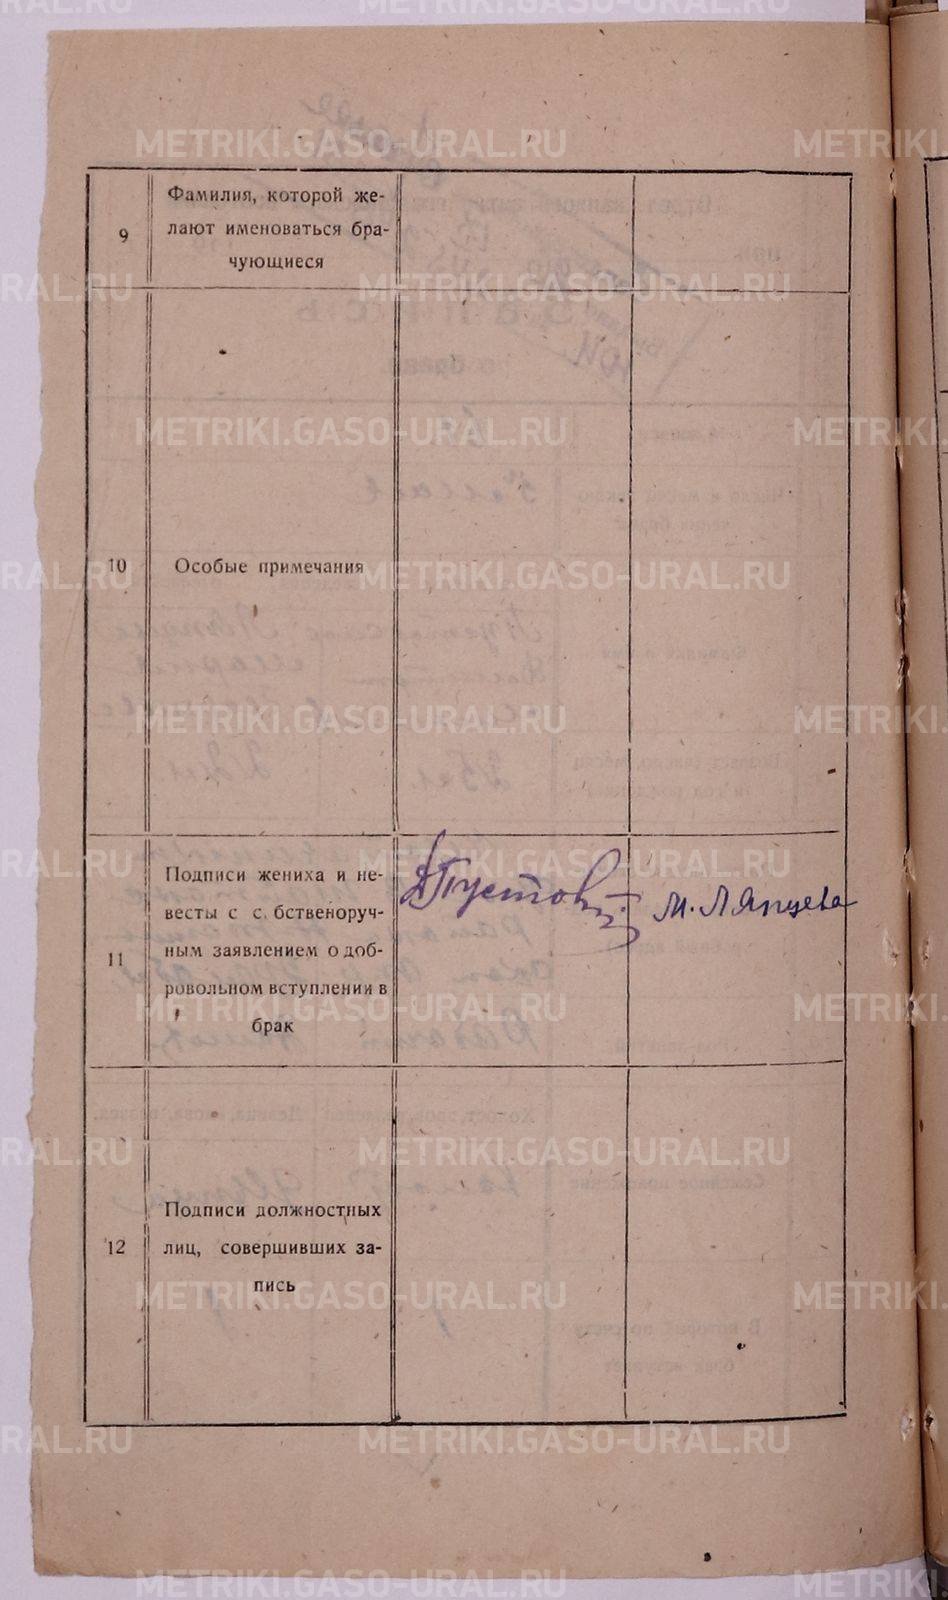 METRIKI.GASO-URAL.RU
9
Фамилия, которой же-
лают именоваться бра-
чующиеся
10
Особые примечания
11
Подписи жениха и не-
весты с с бственоруч-
ным заявлением о доб-
ровольном вступлении в
брак
М. Ляпцева
12
Подписи должностных
лиц, совершивших за-
пись